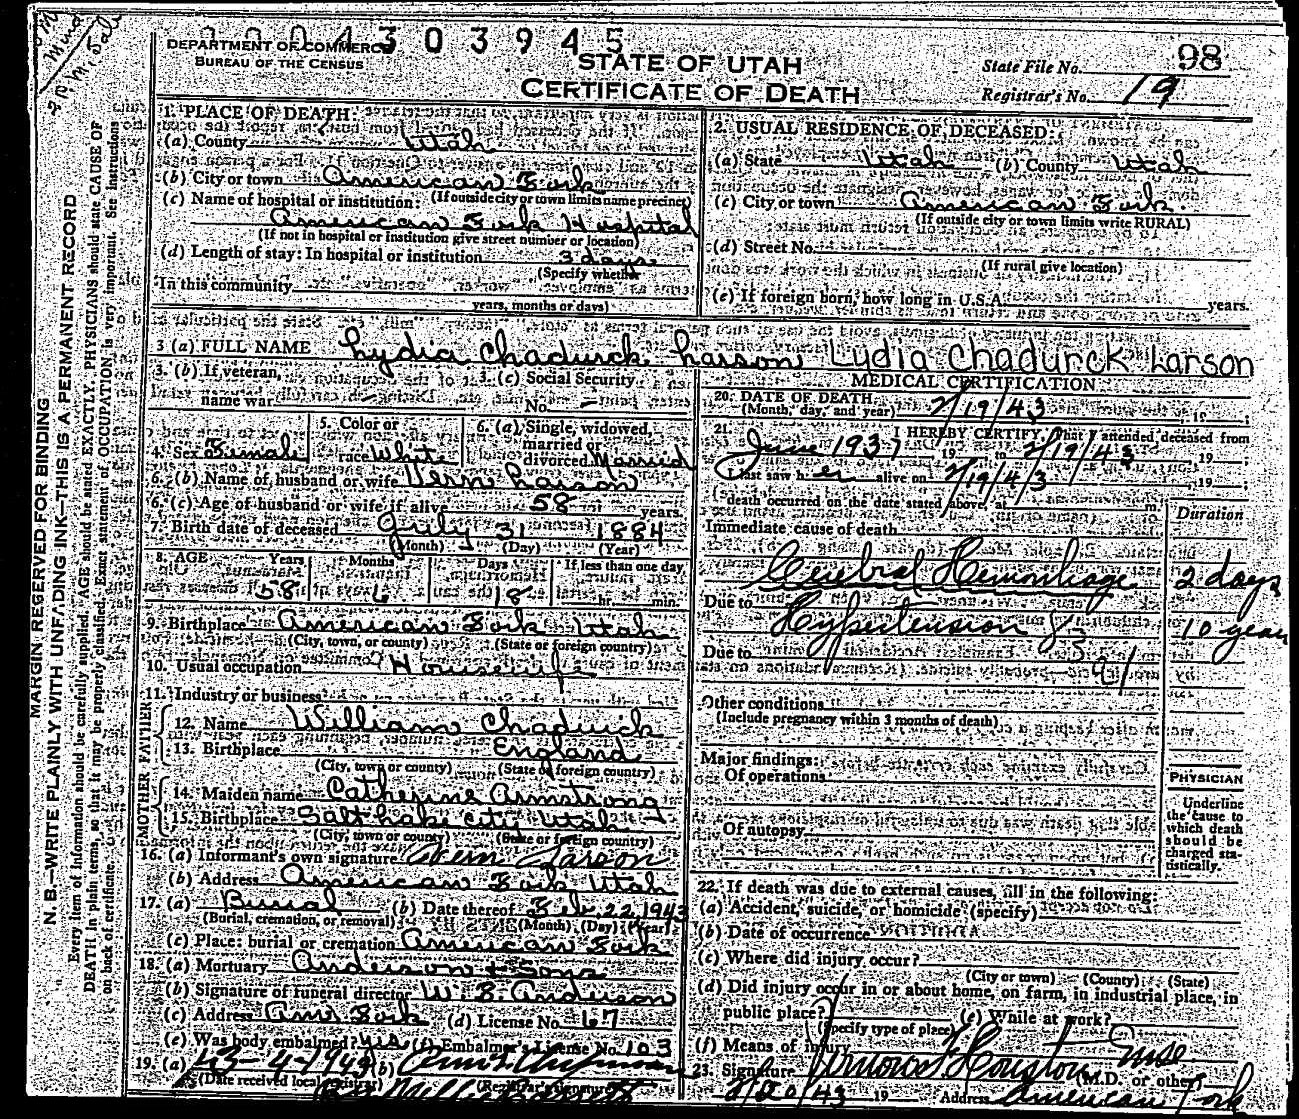 2004303945
DEPARTMENT OF COMMERCE
BUREAU OF THE CENSUS
STATE OF UTAH
CERTIFICATE OF DEATH
State File No. 98
Registrar's No. 19
MARGIN RESERVED FOR BINDING
N. B.—WRITE PLAINLY WITH UNFADING INK—THIS IS A PERMANENT RECORD
Every item of information should be carefully supplied. AGE should be stated EXACTLY. PHYSICIANS should state CAUSE OF
DEATH in plain terms, so that it may be properly classified. Exact statement of OCCUPATION is very important. See instructions
on back of certificate.
1. PLACE OF DEATH:
(a) County Utah
(b) City or town American Fork
(If outside city or town limits name precinct)
(c) Name of hospital or institution:
American Fork Hospital
(If not in hospital or institution give street number or location)
(d) Length of stay: In hospital or institution 3 days
(Specify whether
In this community
years, months or days)
2. USUAL RESIDENCE OF DECEASED:
(a) State Utah (b) County Utah
(c) City or town American Fork
(If outside city or town limits write RURAL)
(d) Street No.
(If rural give location)
(e) If foreign born, how long in U.S.A. years.
3 (a) FULL NAME Lydia Chadurck Larson Lydia Chadurck Larson
3. (b) If veteran,
name war
3. (c) Social Security
No. –
4. Sex Female
5. Color or
race White
6. (a) Single, widowed,
married or
divorced Married
6. (b) Name of husband or wife Vern Larson
6. (c) Age of husband or wife if alive 58 years.
7. Birth date of deceased July 31 1884
(Month) (Day) (Year)
8. AGE Years Months Days If less than one day
58 6 18 hr. min.
9. Birthplace American Fork Utah
(City, town, or county) (State or foreign country)
10. Usual occupation Housewife
11. Industry or business
FATHER
12. Name William Chadwick
13. Birthplace England
(City, town or county) (State or foreign country)
MOTHER
14. Maiden name Catherine Armstrong
15. Birthplace Salt Lake City Utah
(City, town or county) (State or foreign country)
16. (a) Informant's own signature Vern Larson
(b) Address American Fork, Utah
17. (a) Burial (b) Date thereof Feb. 22 1943
(Burial, cremation, or removal) (Month) (Day) (Year)
(c) Place: burial or cremation American Fork
18. (a) Mortuary Anderson & Sons
(b) Signature of funeral director W. B. Anderson
(c) Address Am. Fork (d) License No. 67
(e) Was body embalmed? yes (f) Embalmer's License No. 103
19. (a) 43-4-1943 (b)
(Date received local registrar) (Registrar's signature)
MEDICAL CERTIFICATION
20. DATE OF DEATH
(Month, day, and year) 2/19/43, 19
21. I HEREBY CERTIFY, That I attended deceased from
June 1937 19 to 2/19/43 19
I last saw her alive on 2/19/43, 19
death occurred on the date stated above, at m.
Duration
Immediate cause of death
Cerebral Hemorrhage 2 days
Due to Hypertension 10 years
Due to
Other conditions
(Include pregnancy within 3 months of death)
Major findings:
Of operations
Of autopsy
PHYSICIAN
Underline
the cause to
which death
should be
charged sta-
tistically.
22. If death was due to external causes, fill in the following:
(a) Accident, suicide, or homicide (specify)
(b) Date of occurrence
(c) Where did injury occur?
(City or town) (County) (State)
(d) Did injury occur in or about home, on farm, in industrial place, in
public place? (e) While at work?
(Specify type of place)
(f) Means of injury
23. Signature Vernow F Houston
(M.D. or other)
2/20/43 19 Address American Fork